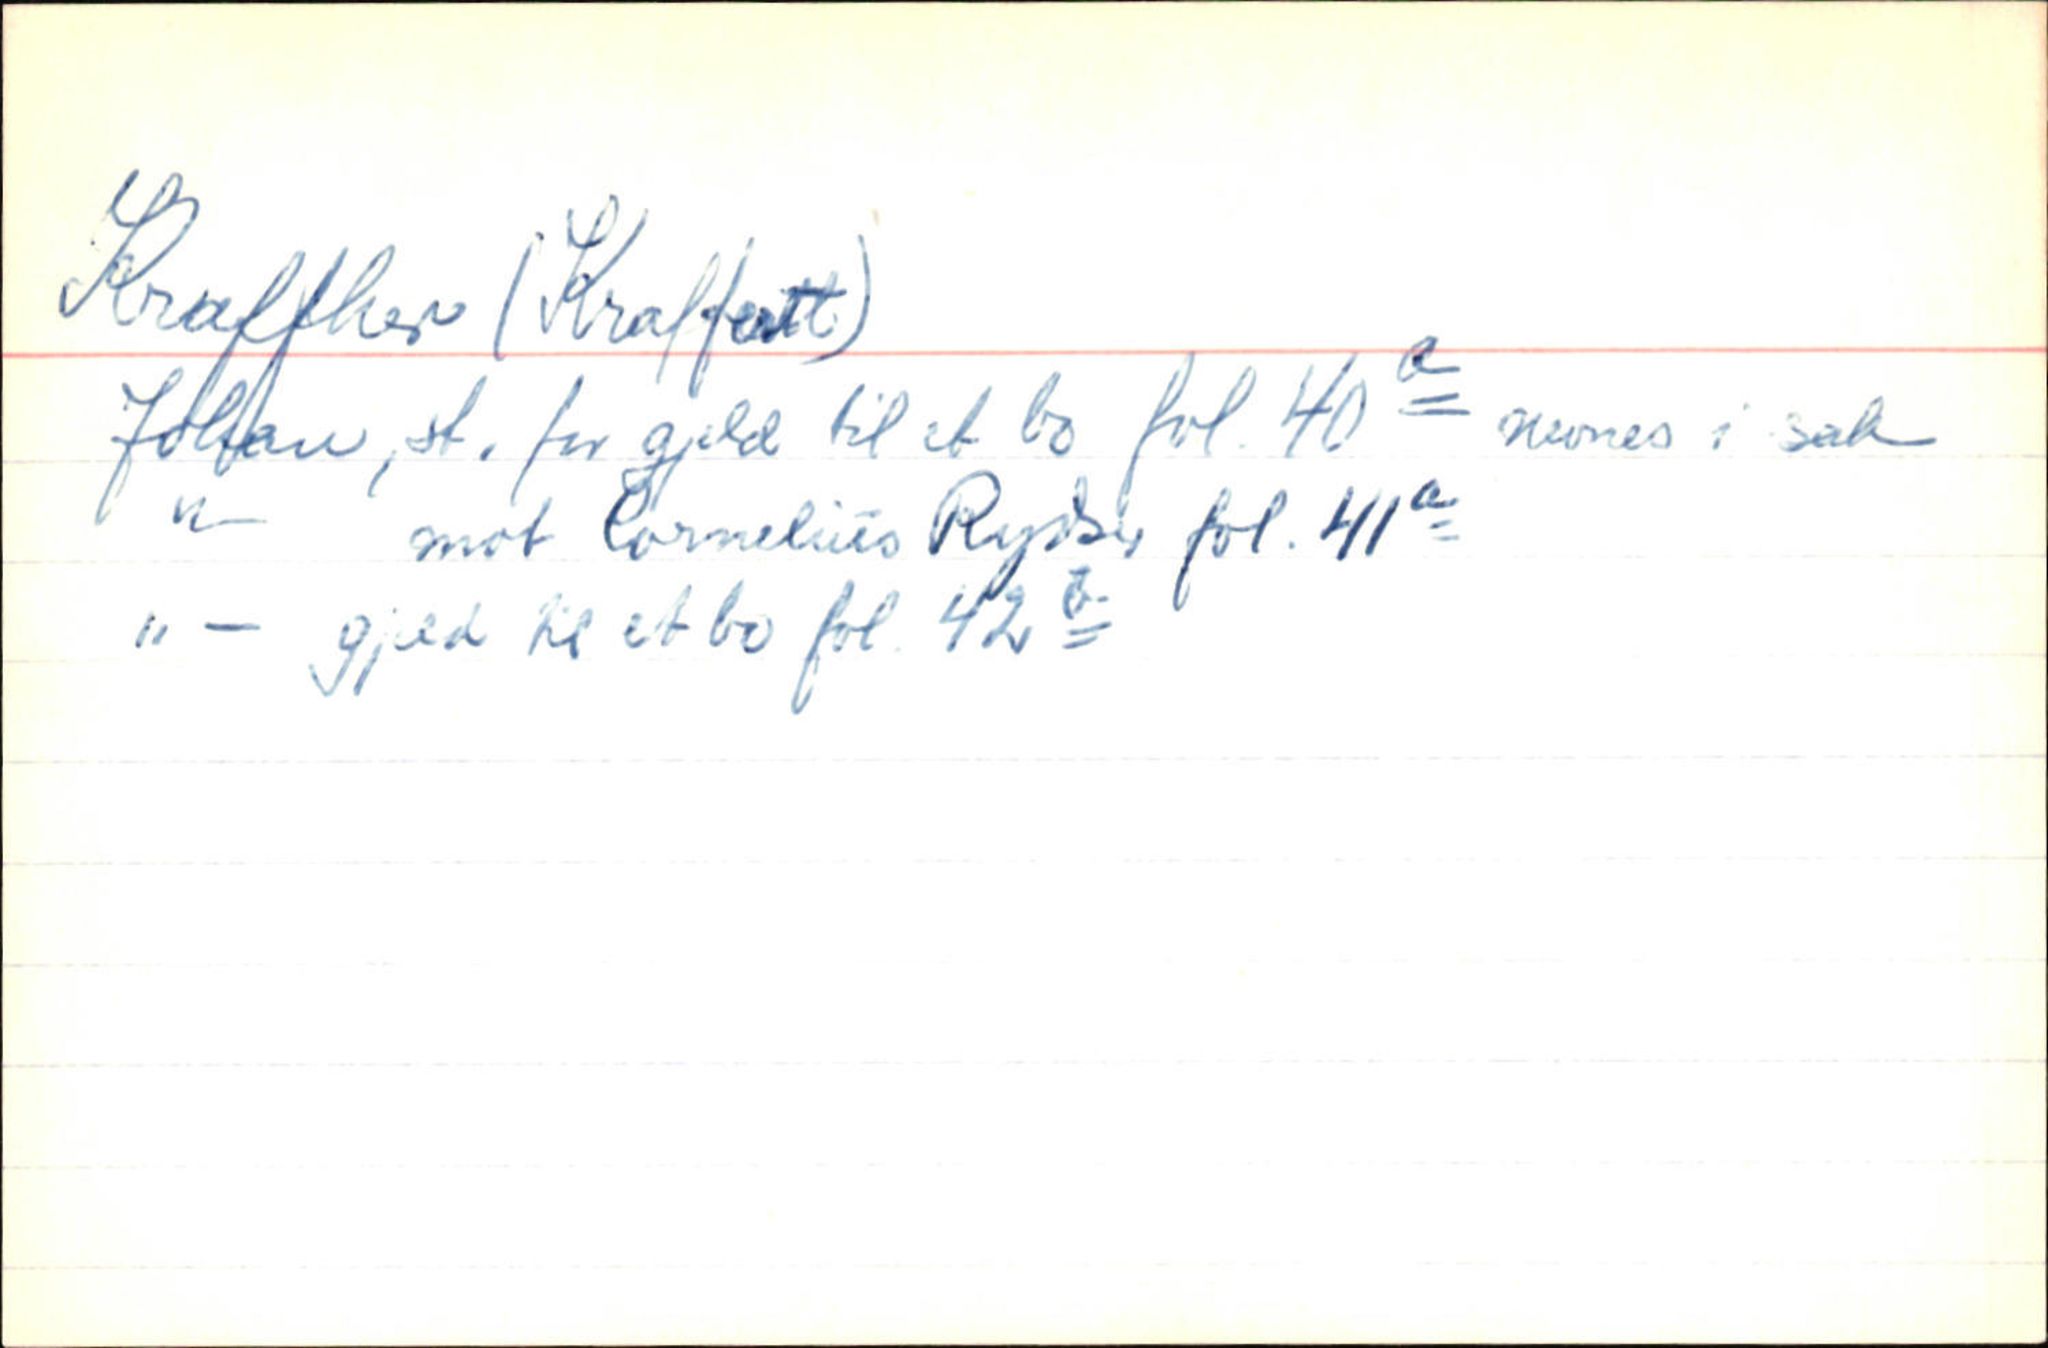 Kraffther (Kraffertt)
Johan, st. for gjeld til et bo fol. 40 a nevnes i sak
"— mot Cornelius Rydser fol. 41 a
" — gjeld til et bo fol. 42 b